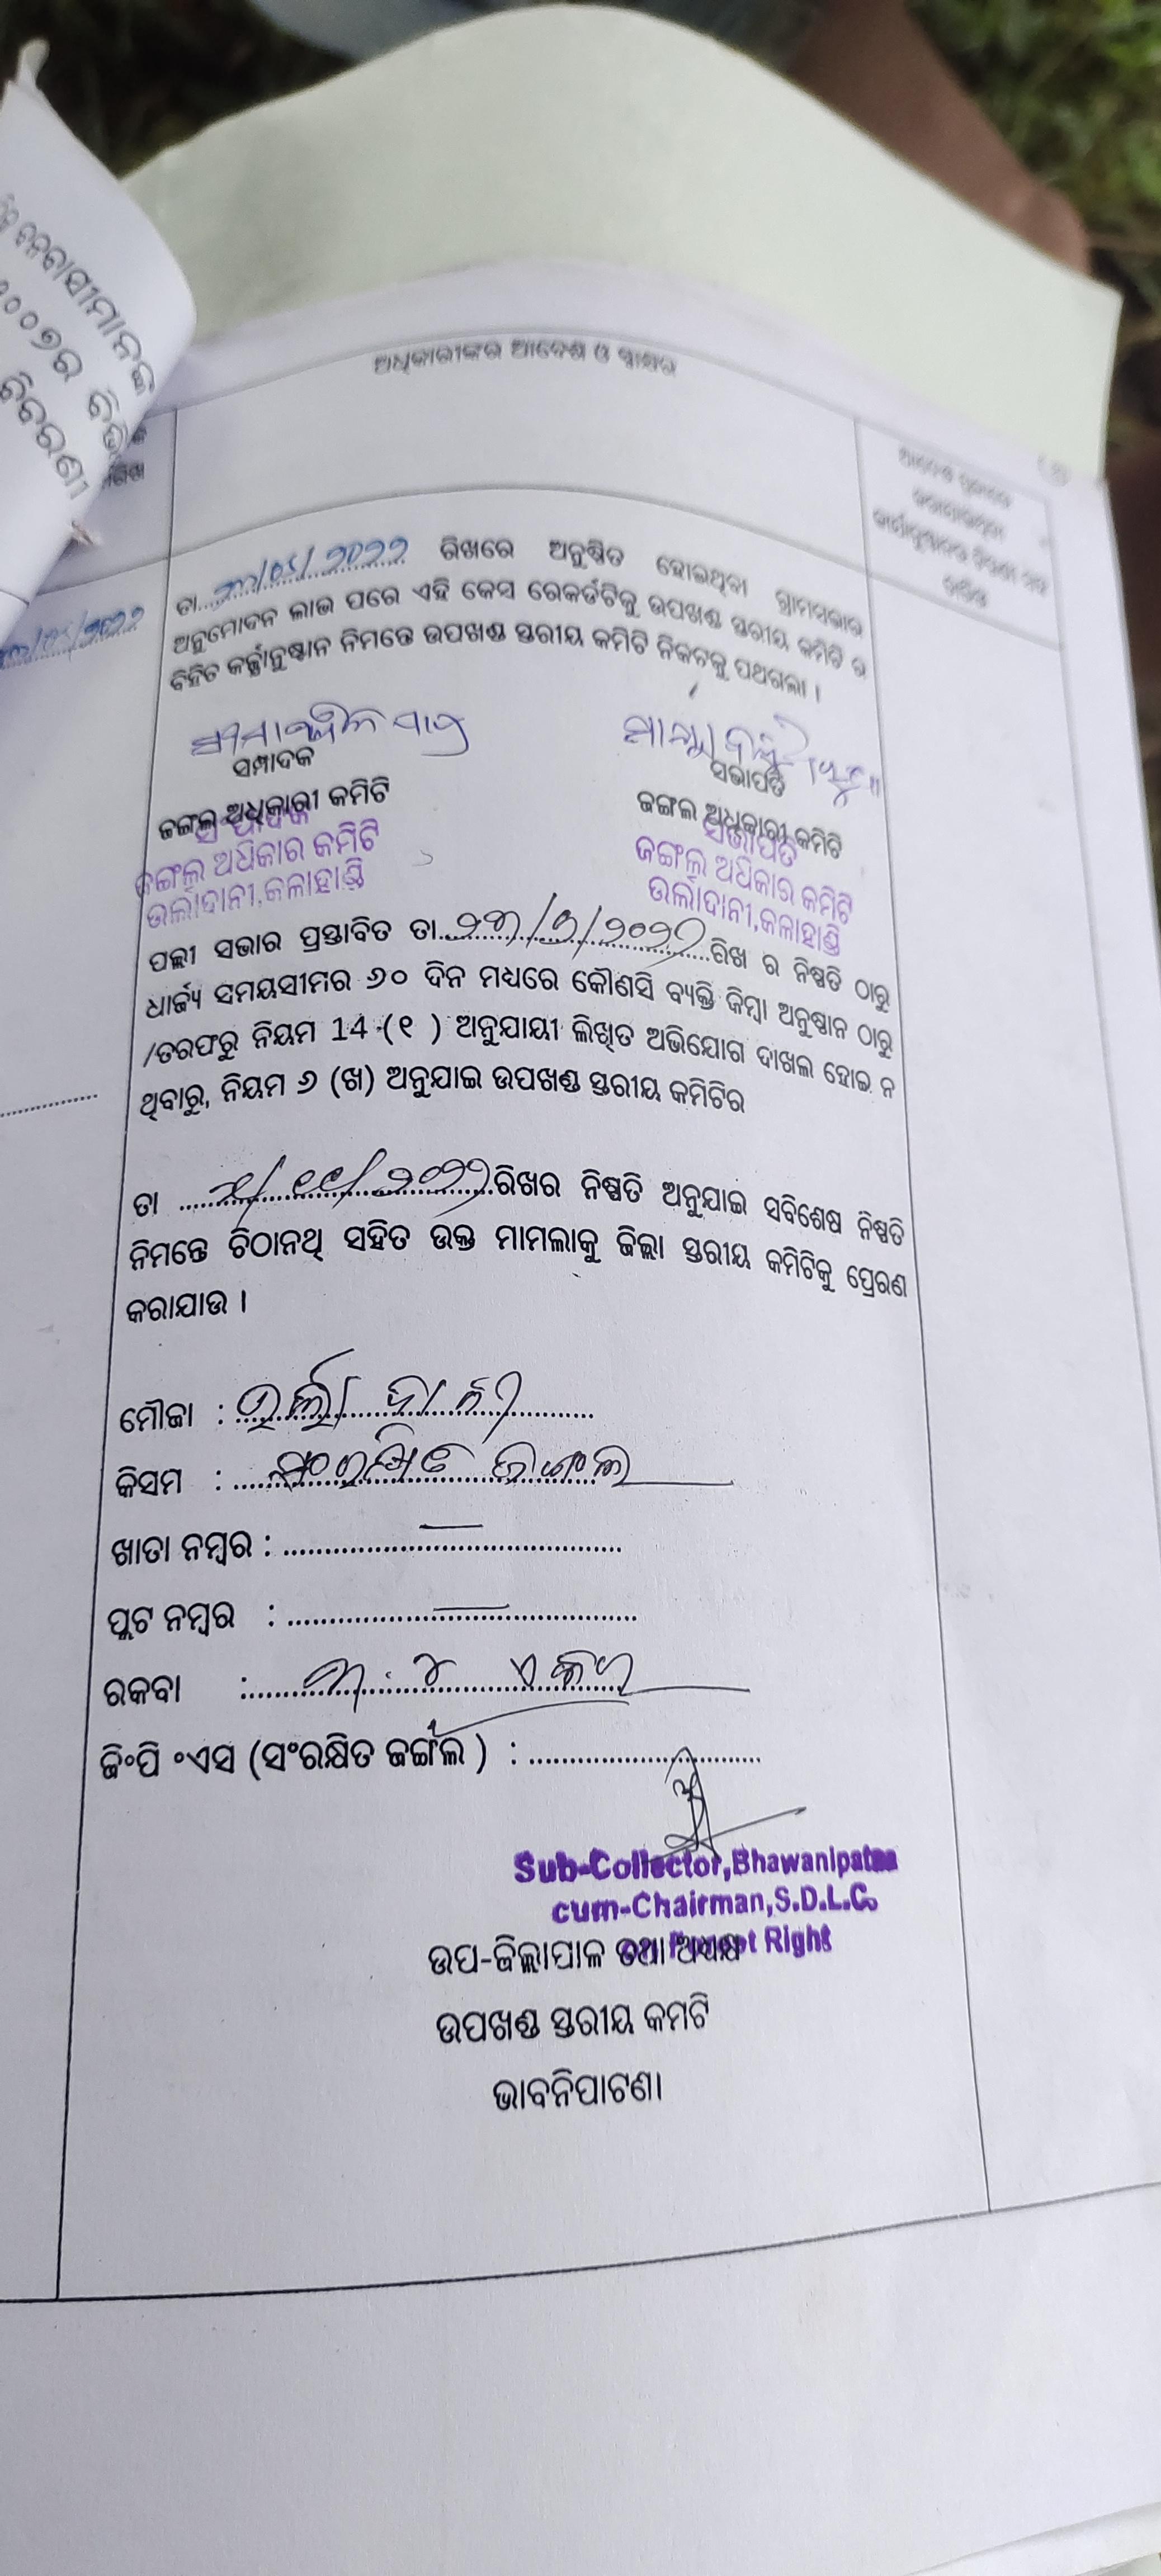 ବନବାସୀମାନଙ୍କ
୨୦୦୭ର
ବିବରଣୀ
ଅଧିକାରୀଙ୍କର ଆଦେଶ ଓ ସ୍ୱାକ୍ଷର
ଆଦେଶ
ସହିତ
ତା.../.../୨୦୨୨ ରିଖରେ ଅନୁଷ୍ଠିତ ହୋଇଥିବା ଗ୍ରାମସଭାର
ଅନୁମୋଦନ ଲାଭ ପରେ ଏହି କେସ ରେକର୍ଡଟିକୁ ଉପଖଣ୍ଡ ସ୍ତରୀୟ କମିଟି ର
ବିହିତ କର୍ତ୍ତାନୁଷ୍ଠାନ ନିମନ୍ତେ ଉପଖଣ୍ଡ ସ୍ତରୀୟ କମିଟି ନିକଟକୁ ପଥଗଲା ।
ସମ୍ପାଦକ
ଜଙ୍ଗଲ ଅଧିକାରୀ କମିଟି
ସଭାପତି
ଜଙ୍ଗଲ ଅଧିକାରୀ କମିଟି
ସଂପାଦକ
ଜଙ୍ଗଲ ଅଧିକାର କମିଟି
ଉର୍ଲାଦାନୀ,କଳାହାଣ୍ଡି
ସଭାପତି
ଜଙ୍ଗଲ ଅଧିକାର କମିଟି
ଉର୍ଲାଦାନୀ,କଳାହାଣ୍ଡି
ପଲ୍ଲୀ ସଭାର ପ୍ରସ୍ତାବିତ ତା..../୨୦୨୨ରିଖ ର ନିଷ୍ପତି ଠାରୁ
ଧାର୍ଯ୍ୟ ସମୟସୀମର ୬୦ ଦିନ ମଧ୍ୟରେ କୌଣସି ବ୍ୟକ୍ତି କିମ୍ବା ଅନୁଷ୍ଠାନ ଠାରୁ
/ତରଫରୁ ନିୟମ 14 (୧ ) ଅନୁଯାୟୀ ଲିଖିତ ଅଭିଯୋଗ ଦାଖଲ ହୋଇ ନ
ଥିବାରୁ, ନିୟମ ୬ (ଖ) ଅନୁଯାଇ ଉପଖଣ୍ଡ ସ୍ତରୀୟ କମିଟିର
ତା ..../୧୧/୨୦୨୨ରିଖର ନିଷ୍ପତି ଅନୁଯାଇ ସବିଶେଷ ନିଷ୍ପତି
ନିମନ୍ତେ ଚିଠାନଥି ସହିତ ଉକ୍ତ ମାମଲାକୁ ଜିଲ୍ଲା ସ୍ତରୀୟ କମିଟିକୁ ପ୍ରେରଣ
କରାଯାଉ ।
ମୌଜା : ଉର୍ଲାଦାନୀ
କିସମ : ସଂରକ୍ଷିତ ଜଙ୍ଗଲ
ଖାତା ନମ୍ବର : —
ପ୍ଲଟ ନମ୍ବର : —
ରକବା : ୩.୪ ଏକର
ଜିଂପି ଂଏସ (ସଂରକ୍ଷିତ ଜଙ୍ଗଲ ) : ..............................
Sub-Collector,Bhawanipatna
cum-Chairman,S.D.L.C.
on Forest Right
ଉପ-ଜିଲ୍ଲାପାଳ ତଥା ଅଧ୍ୟକ୍ଷ
ଉପଖଣ୍ଡ ସ୍ତରୀୟ କମଟି
ଭାବନିପାଟଣା